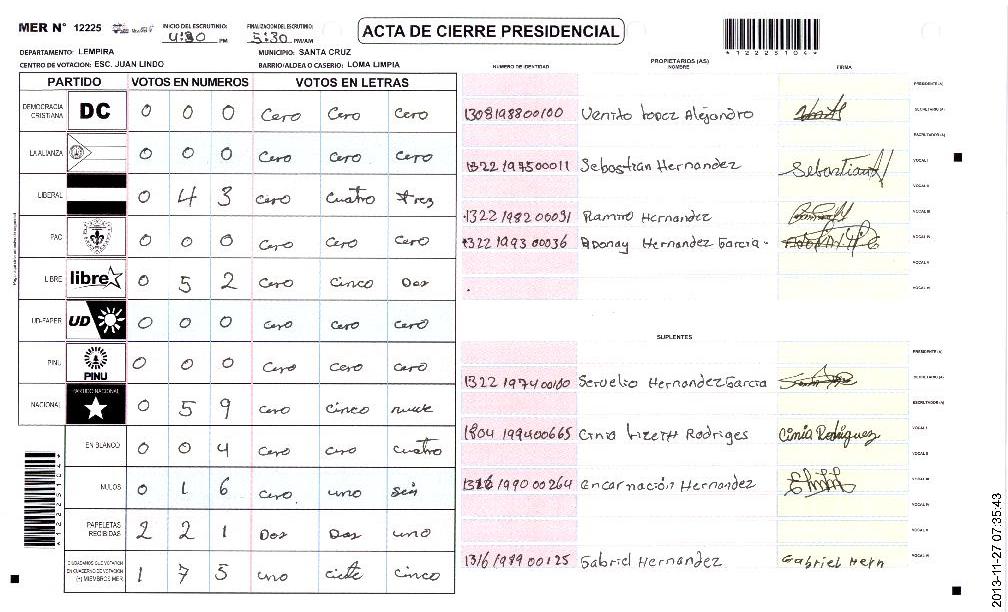 MER N° 12225 INICIO DEL ESCRUTINIO: 4:30 PM FINALIZACIÓN DEL ESCRUTINIO: 5:30 PM/AM ACTA DE CIERRE PRESIDENCIAL
*12225104*
DEPARTAMENTO: LEMPIRA MUNICIPIO: SANTA CRUZ
CENTRO DE VOTACION: ESC. JUAN LINDO BARRIO/ALDEA O CASERIO: LOMA LIMPIA
PARTIDO VOTOS EN NUMEROS VOTOS EN LETRAS
DEMOCRACIA CRISTIANA DC 0 0 0 Cero Cero Cero
LA ALIANZA 0 0 0 Cero Cero Cero
LIBERAL 0 4 3 cero Cuatro trez
PAC 0 0 0 Cero Cero Cero
LIBRE libre 0 5 2 Cero Cinco Dos
UD-FAPER UD 0 0 0 Cero Cero Cero
PINU PINU 0 0 0 Cero Cero Cero
NACIONAL PARTIDO NACIONAL 0 5 9 cero Cinco nueve
EN BLANCO 0 0 4 Cero cero cuatro
NULOS 0 1 6 Cero uno seis
PAPELETAS RECIBIDAS 2 2 1 Dos Dos uno
CIUDADANOS QUE VOTARON EN CUADERNO DE VOTACION (+) MIEMBROS MER 1 7 5 uno ciete cinco
PROPIETARIOS (AS)
NUMERO DE IDENTIDAD NOMBRE FIRMA
PRESIDENTE (A)
1308198800100 Venito Lopez Alejandro SECRETARIO (A)
ESCRUTADOR (A)
1322197500011 Sebastian Hernandez Sebastian H VOCAL I
VOCAL II
1322198200091 Ramiro Hernandez VOCAL III
1322199300036 Adonay Hernandez Garcia VOCAL IV
VOCAL V
VOCAL VI
SUPLENTES
PRESIDENTE (A)
1322197400100 Servelio Hernandez Garcia SECRETARIO (A)
ESCRUTADOR (A)
1804199400665 Cinia Lizeth Rodriges Cinia Rodriguez VOCAL I
VOCAL II
1316199000264 Encarnación Hernandez VOCAL III
VOCAL IV
VOCAL V
1316198900125 Gabriel Hernandez Gabriel Hern VOCAL VI
*12225104*
2013-11-27 07:35:43